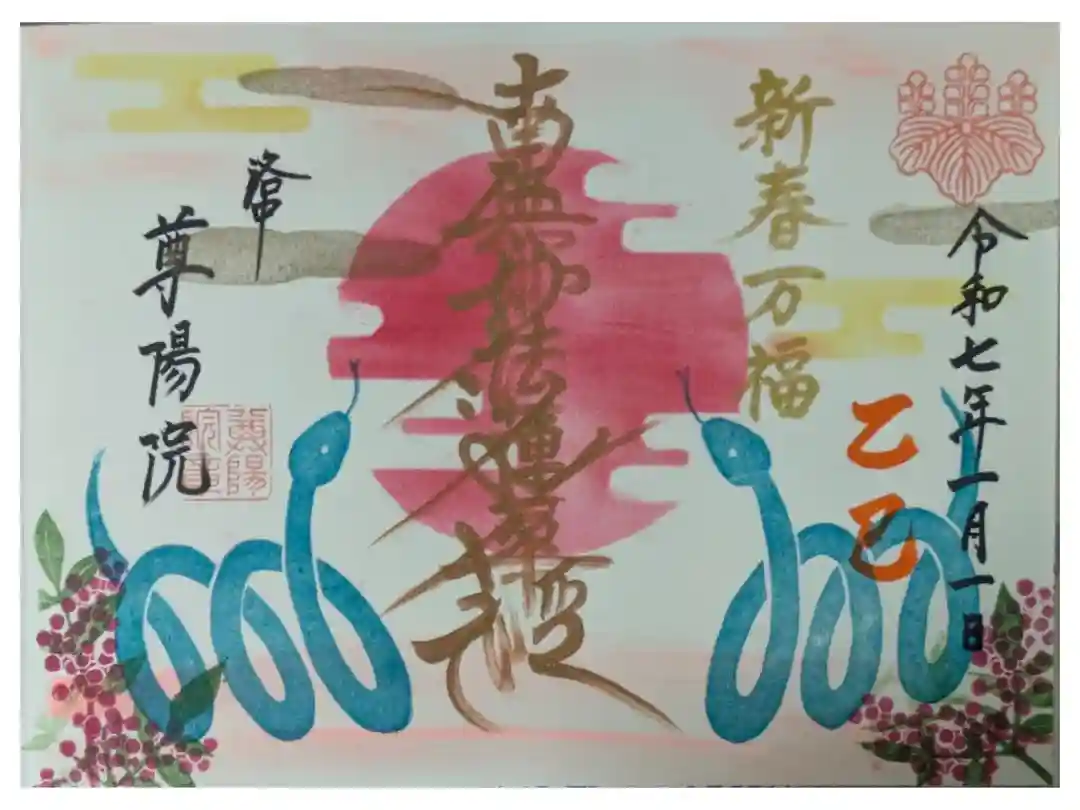 令和七年一月一日
乙巳
新春万福
南無妙法蓮華経
洛中
尊陽院